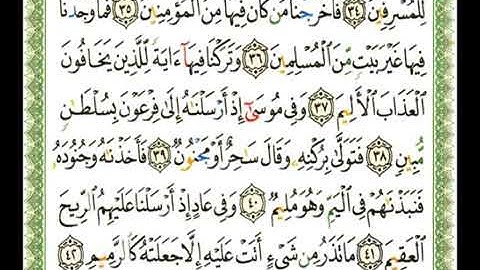 لِّلْمُسْرِفِينَ ٣٤ فَأَخْرَجْنَا مَن كَانَ فِيهَا مِنَ ٱلْمُؤْمِنِينَ ٣٥ فَمَا وَجَدْنَا
فِيهَا غَيْرَ بَيْتٍ مِّنَ ٱلْمُسْلِمِينَ ٣٦ وَتَرَكْنَا فِيهَآ ءَايَةً لِّلَّذِينَ يَخَافُونَ
ٱلْعَذَابَ ٱلْأَلِيمَ ٣٧ وَفِى مُوسَىٰٓ إِذْ أَرْسَلْنَٰهُ إِلَىٰ فِرْعَوْنَ بِسُلْطَٰنٍ
مُّبِينٍ ٣٨ فَتَوَلَّىٰ بِرُكْنِهِۦ وَقَالَ سَٰحِرٌ أَوْ مَجْنُونٌ ٣٩ فَأَخَذْنَٰهُ وَجُنُودَهُۥ
فَنَبَذْنَٰهُمْ فِى ٱلْيَمِّ وَهُوَ مُلِيمٌ ٤٠ وَفِى عَادٍ إِذْ أَرْسَلْنَا عَلَيْهِمُ ٱلرِّيحَ
ٱلْعَقِيمَ ٤١ مَا تَذَرُ مِن شَىْءٍ أَتَتْ عَلَيْهِ إِلَّا جَعَلَتْهُ كَٱلرَّمِيمِ ٤٢